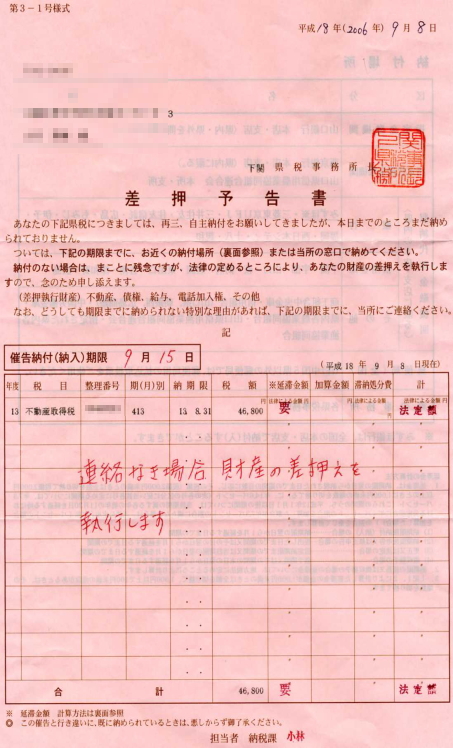 第3-1号様式
平成18年(2006年)9月8日
3
下関県税事務所長
差押予告書
あなたの下記県税につきましては、再三、自主納付をお願いしてきましたが、本日までのところまだ納め
られておりません。
ついては、下記の期限までに、お近くの納付場所(裏面参照)または当所の窓口で納めてください。
納付のない場合は、まことに残念ですが、法律の定めるところにより、あなたの財産の差押えを執行しま
すので、念のため申し添えます。
(差押執行財産)不動産、債権、給与、電話加入権、その他
なお、どうしても期限までに納められない特別な理由があれば、下記の期限までに、当所にご連絡ください。
記
催告納付(納入)期限 9月15日
(平成18年9月8日現在)
年度 税目 整理番号 期(月)別 納期限 税額 ※延滞金額 加算金額 滞納処分費 計
円 法律による金額 円 円 法律による金額 円
13 不動産取得税 413 13. 8.31 46,800 要 法定額
連絡なき場合 財産の差押えを
執行します
合計 46,800 要 法定額
※ 延滞金額 計算方法は裏面参照
◎ この催告と行き違いに、既に納められているときは、悪しからず御了承ください。
担当者 納税課 小林